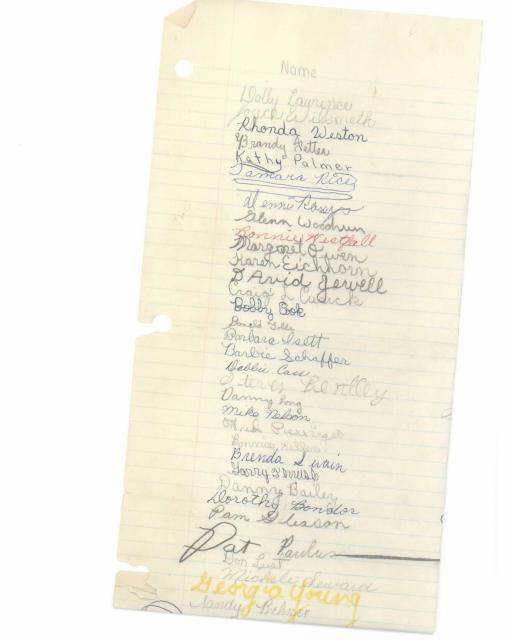 Name
Dolly Lawrence
Joyce Wilsmeth
Rhonda Weston
Brandy Fetter
Kathy Palmer
Tamara Rice
Dennis Rogers
Glenn Woodrum
Ronnie Westfall
Margaret Owen
Karen Eichhorn
DAvid Jewell
Craig L Cusick
Bobby Cook
Donald
Barbara Isett
Barbie Schaffer
Debbie Cass
Danny Long
Mike Nelson
Bonnie
Brenda Swain
Danny Bailey
Dorothy Bondor
Pam Gleason
Pat Paulus
Don Lust
Michele Seward
Georgia Young
Sandy Behner